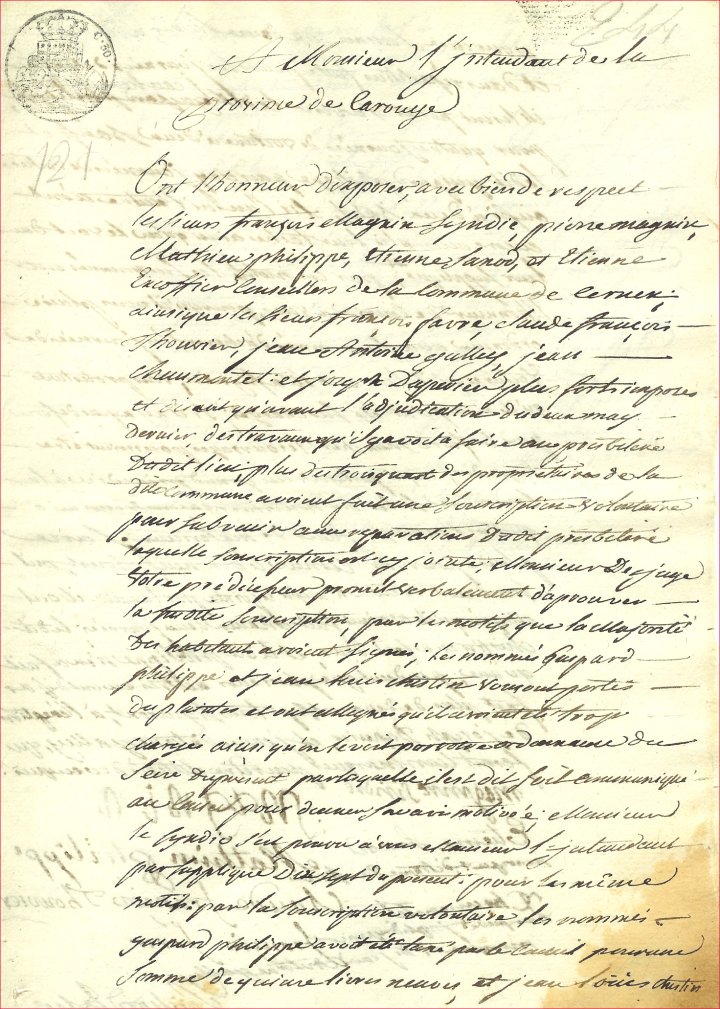 C. 80.
244
A Monsieur l'jntendant de la
province de Carouge
121
Ont l'honneur d'exposer, avec bien de respect
les sieurs françois Magnin Syndic, pierre magnin,
Mathieu philippe, Etienne Sanod, et Etienne
Excoffier Conseillers de la Commune de Cernex;
ainsique les sieurs françois favre, claude françois
Thouvier, jean Antoine galley, jean
chaumontet: et joseph Dapotier plus forts imposés
et disent qu'avant l'adjudication du deux may
dernier, des travaux qu'il y avoit a faire au presbitéré
Dudit lieu, plus des trois quart des proprietaires de la
dite Commune avoient fait une Souscription volontaire
pour subvenir aux reparations dudit presbitéré
laquelle Souscription est cy jointe, Monsieur Desjage
Votre prédécheur promit verbalement d'aprouver
la susditte Souscription, par les motifs que la Majorité
Des habitants avoient Signés; les nommés Gaspard
philippe et jean luis chestin vous ont portés
des plaintes et ont allegnés qu'ils avoient été trop
chargés ainsi qu'on le voit par votre ordonnance du
Seize du présent par laquelle il est dit soit Communiqué
au Conseil pour donner son avis motivé; Monsieur
le Syndic s'est pourvu à vous Monsieur l'jntendant
par supplique Dix sept du present: pour les même
motifs: par la Souscription volontaire les nommés
gaspard philippe avoit été taxé par le Conseil pour une
Somme de quinze livres neuves, et jean louis chestin